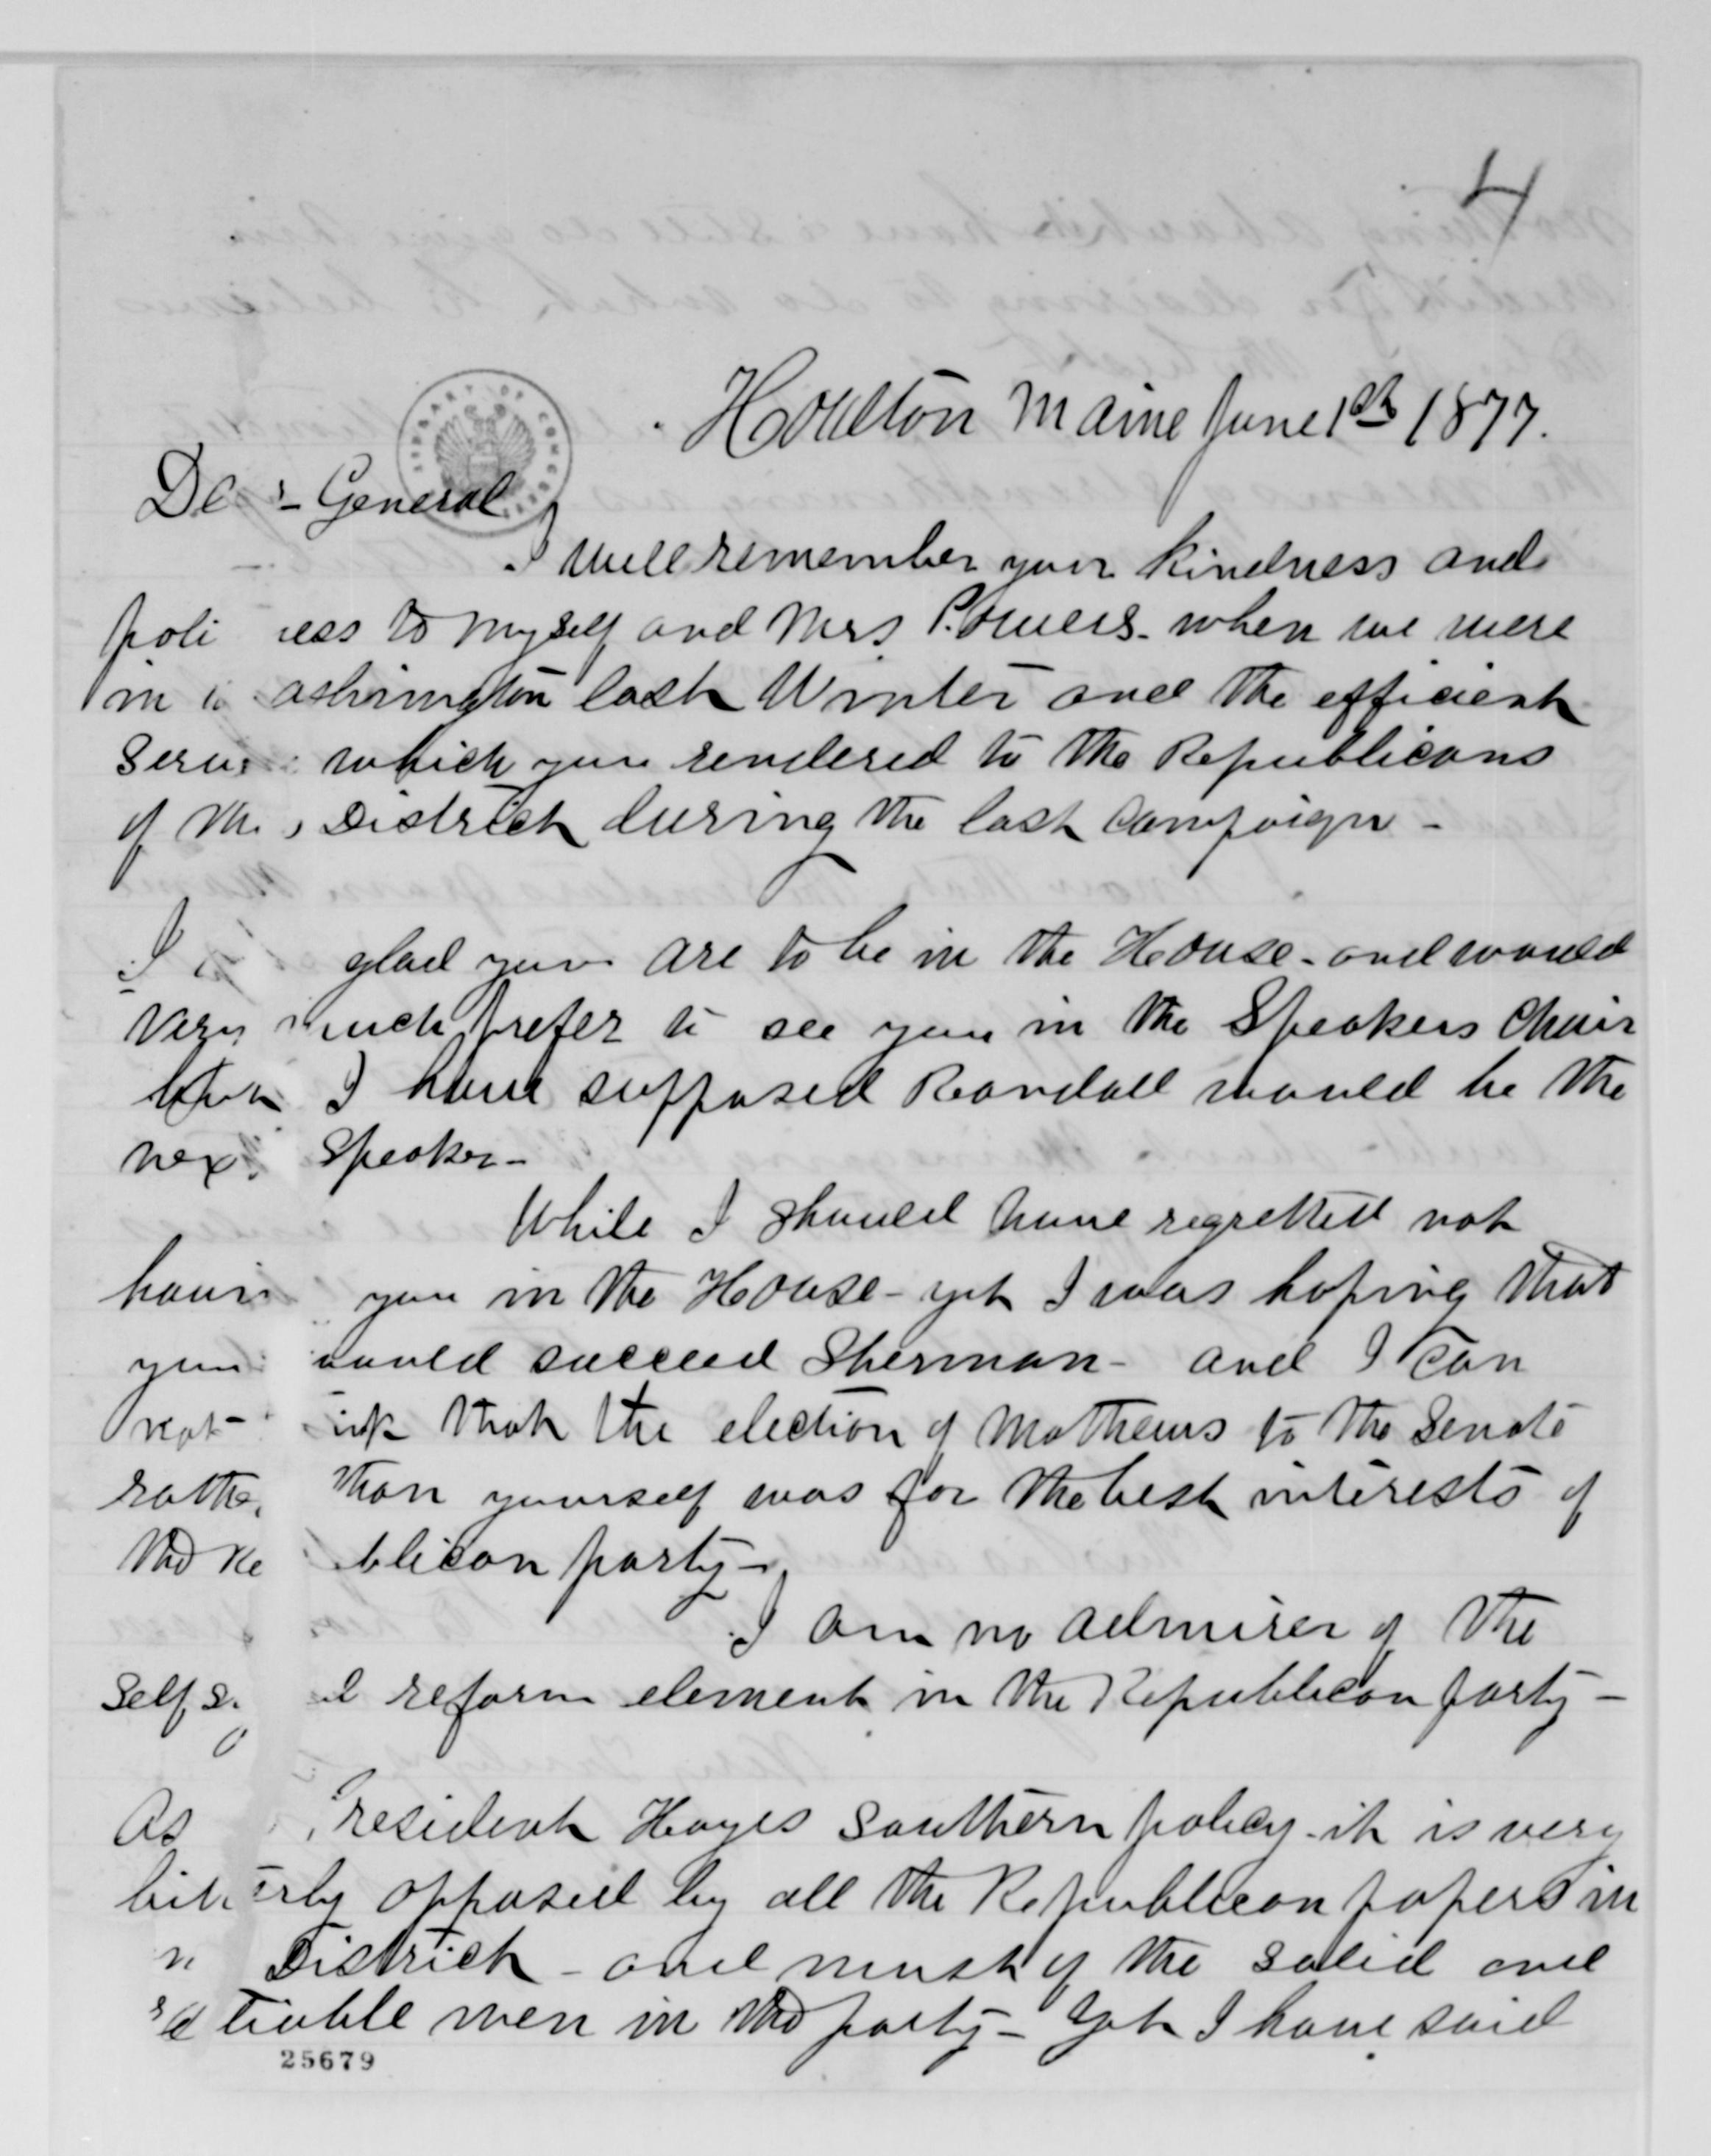 4
LIBRARY OF CONGRESS
Houlton Maine June 1st 1877.
De r - General
I well remember your kindness and
poli ness to myself and Mrs Powers - when we were
in ashington last Winter and the efficient
Serv which you rendered to the Republicans
of this District during the last Campaign -
I glad you are to be in the House - and would
very much prefer to see you in the Speakers Chair
but I have supposed Randall would be the
nex Speaker -
While I should have regretted not
havin you in the House - yet I was hoping that
you would succeed Sherman - and I can
not ink that the election of Mathews to the Senate
rathe than yourself was for the best interests of
the Re blican party -
I am no admirer of the
self s d reform element in the Republican party -
As President Hayes Southern policy - it is very
bitterly opposed by all the Republican papers in
District - and most of the solid and
re liable men in the party - Yet I have said
25679